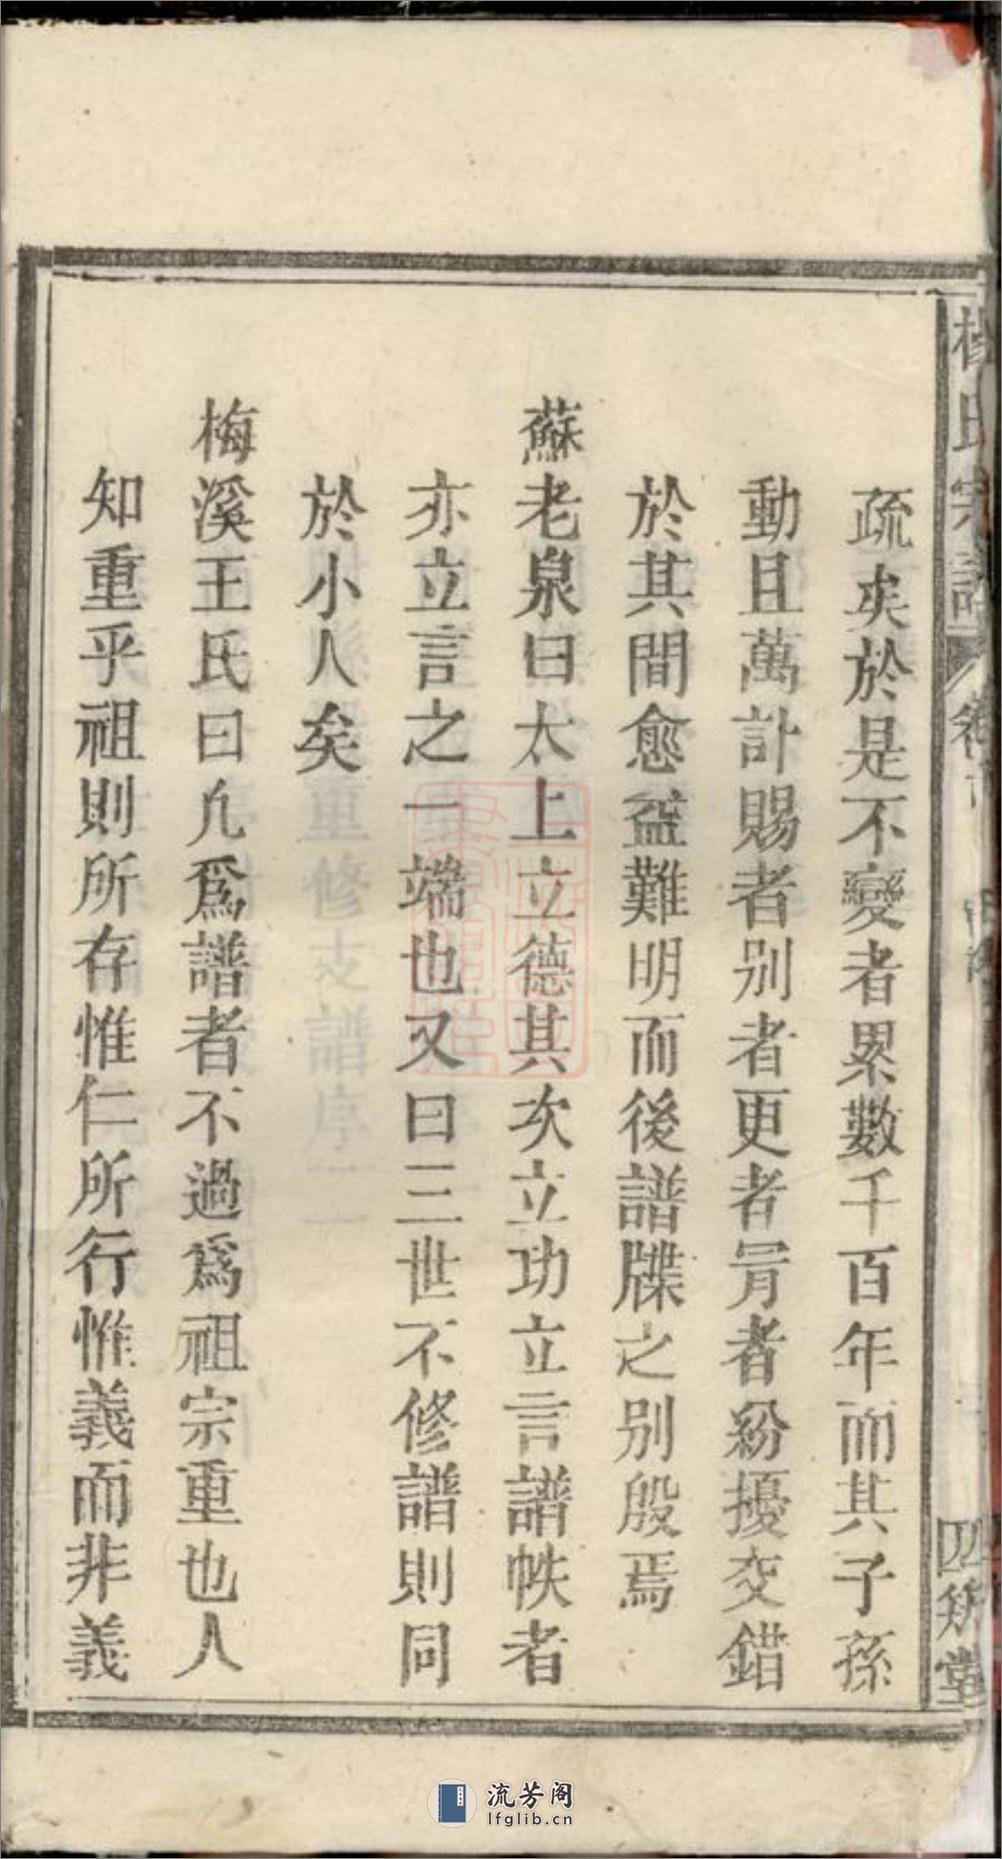 疏矣於是不變者累數千百年而其子孫
動且萬計賜者别者更者冐者紛擾交錯
於其間愈益難明而後譜牒之别殷焉
蘇老泉曰太上立德其次立功立言譜帙者
亦立言之一端也又曰三世不修譜則同
於小人矣
梅溪王氏曰凢爲譜者不過爲祖宗重也人
知重乎祖則所存惟仁所行惟義而非義
流芳阁
lfglib.cn